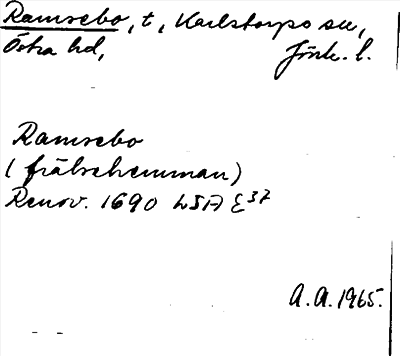 Ramsebo, t, Karlstorps sn,
Östra hd, Jönk. l.
Ramsebo
(frälsehemman)
Renov. 1690 LSA E37
A.A. 1965.